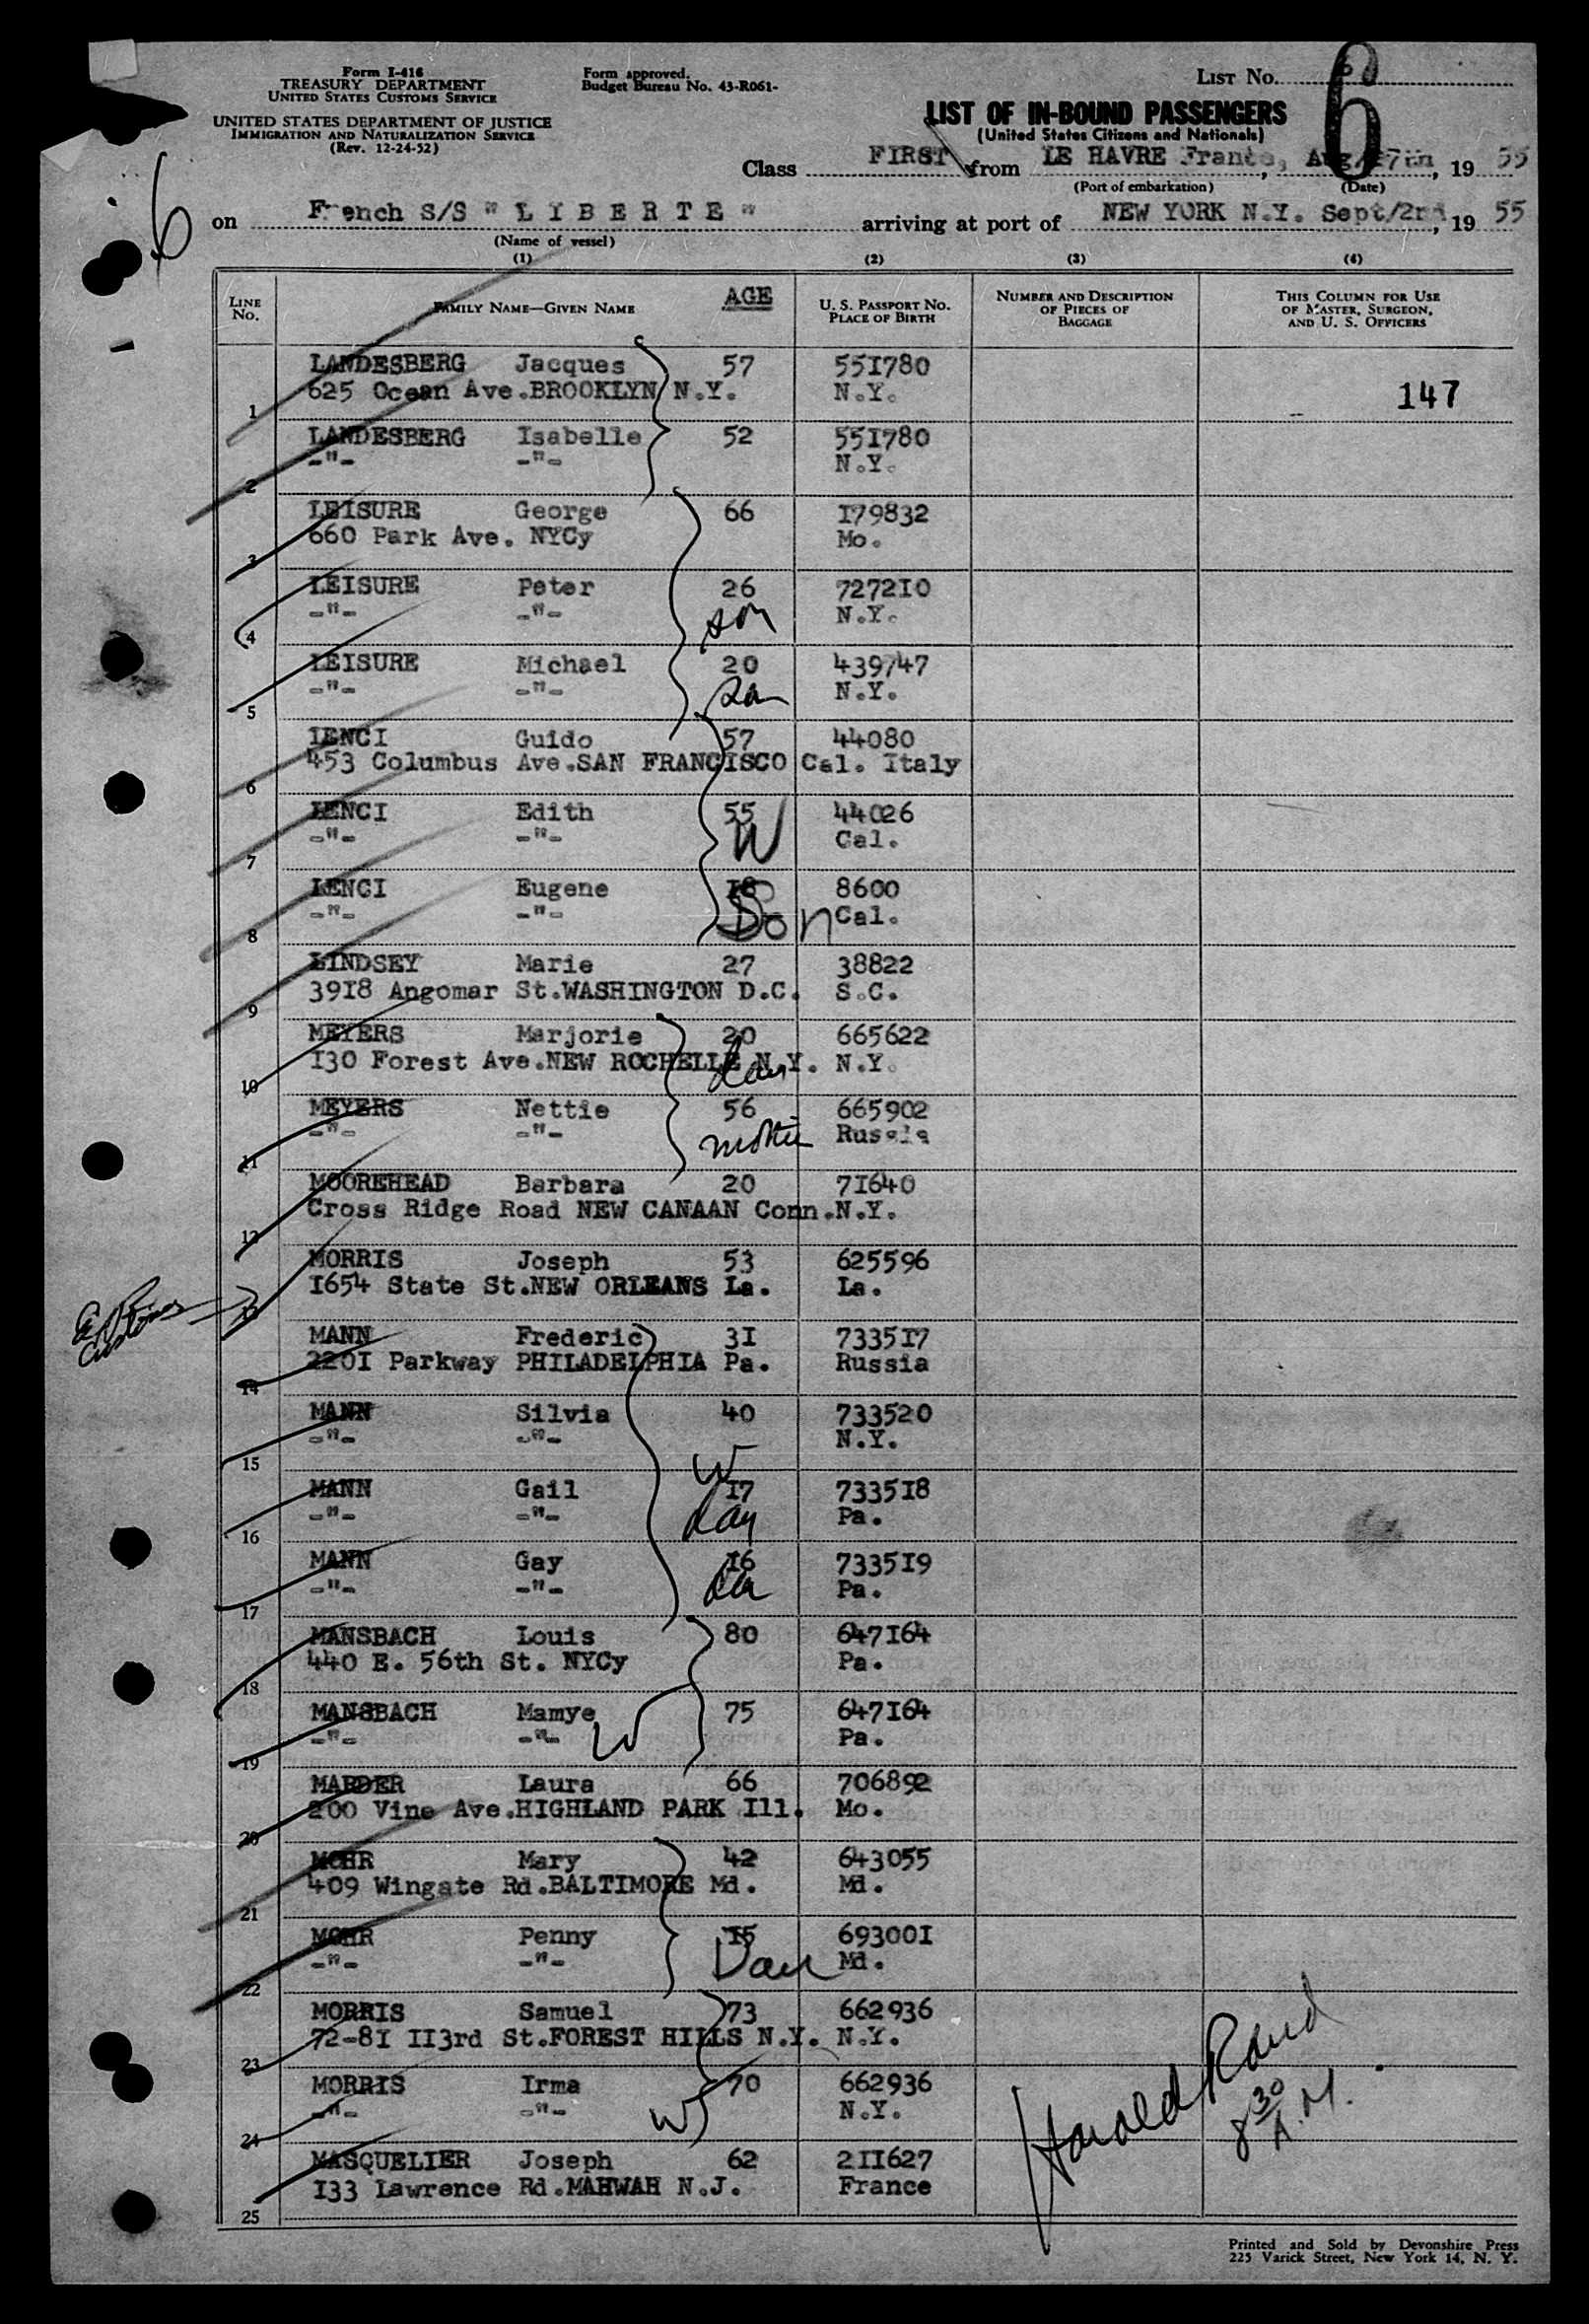 Form I-416
TREASURY DEPARTMENT
UNITED STATES CUSTOMS SERVICE
UNITED STATES DEPARTMENT OF JUSTICE
IMMIGRATION AND NATURALIZATION SERVICE
(Rev. 12-24-52)
Form approved.
Budget Bureau No. 43-R061-
LIST No. 6
6
LIST OF IN-BOUND PASSENGERS
(United States Citizens and Nationals)
Class FIRST from LE HAVRE France, Aug/27th, 19 55
(Port of embarkation) (Date)
6
on French S/S "LIBERTE" arriving at port of NEW YORK N.Y. Sept/2nd, 19 55
(Name of vessel)
(1) (2) (3) (4)
LINE No. FAMILY NAME—GIVEN NAME AGE U. S. PASSPORT NO. PLACE OF BIRTH NUMBER AND DESCRIPTION OF PIECES OF BAGGAGE THIS COLUMN FOR USE OF MASTER, SURGEON, AND U. S. OFFICERS
LANDESBERG Jacques 57 551780
1 625 Ocean Ave.BROOKLYN N.Y. N.Y. 147
LANDESBERG Isabelle 52 551780
2 -"- -"- N.Y.
LEISURE George 66 179832
3 660 Park Ave. NYCy Mo.
LEISURE Peter 26 727210
4 -"- -"- son N.Y.
LEISURE Michael 20 439747
5 -"- -"- son N.Y.
LENCI Guido 57 44080
6 453 Columbus Ave.SAN FRANCISCO Cal. Italy
LENCI Edith 55 44026
7 -"- -"- W Cal.
LENCI Eugene 18 8600
8 -"- -"- Son Cal.
LINDSEY Marie 27 38822
9 3918 Angomar St.WASHINGTON D.C. S.C.
MEYERS Marjorie 20 665622
10 130 Forest Ave.NEW ROCHELLE N.Y. dau N.Y.
MEYERS Nettie 56 665902
11 -"- -"- Russia
MOOREHEAD Barbara 20 71640
12 Cross Ridge Road NEW CANAAN Conn.N.Y.
MORRIS Joseph 53 625596
13 1654 State St.NEW ORLEANS La. La.
Customs
MANN Frederic 31 733517
14 2201 Parkway PHILADELPHIA Pa. Russia
MANN Silvia 40 733520
15 -"- -"- W N.Y.
MANN Gail 17 733518
16 -"- -"- dau Pa.
MANN Gay 16 733519
17 -"- -"- Pa.
MANSBACH Louis 80 647164
18 440 E. 56th St. NYCy Pa.
MANSBACH Mamye 75 647164
19 -"- -"- W Pa.
MARDER Laura 66 706892
20 200 Vine Ave.HIGHLAND PARK Ill. Mo.
MOHR Mary 42 643055
21 409 Wingate Rd.BALTIMORE Md. Md.
MOHR Penny 15 693001
22 -"- -"- Dau Md.
MORRIS Samuel 73 662936
23 72-81 113rd St.FOREST HILLS N.Y. N.Y.
MORRIS Irma 70 662936
24 -"- -"- W N.Y.
MASQUELIER Joseph 62 211627
25 133 Lawrence Rd.MAHWAH N.J. France
Harold Rand
8 30 A.M.
Printed and Sold by Devonshire Press
225 Varick Street, New York 14, N. Y.